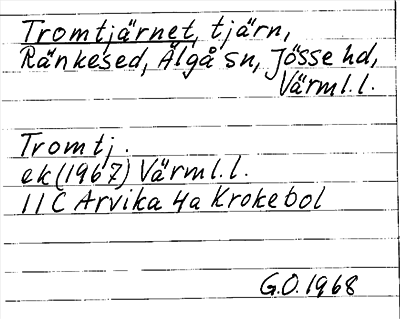 Tromtjärnet, tjärn,
Ränkesed, Älgå sn, Jösse hd,
Värml.l.
Tromtj.
ek(1967) Värml.l.
11C Arvika 4a Krokebol
G.O.1968